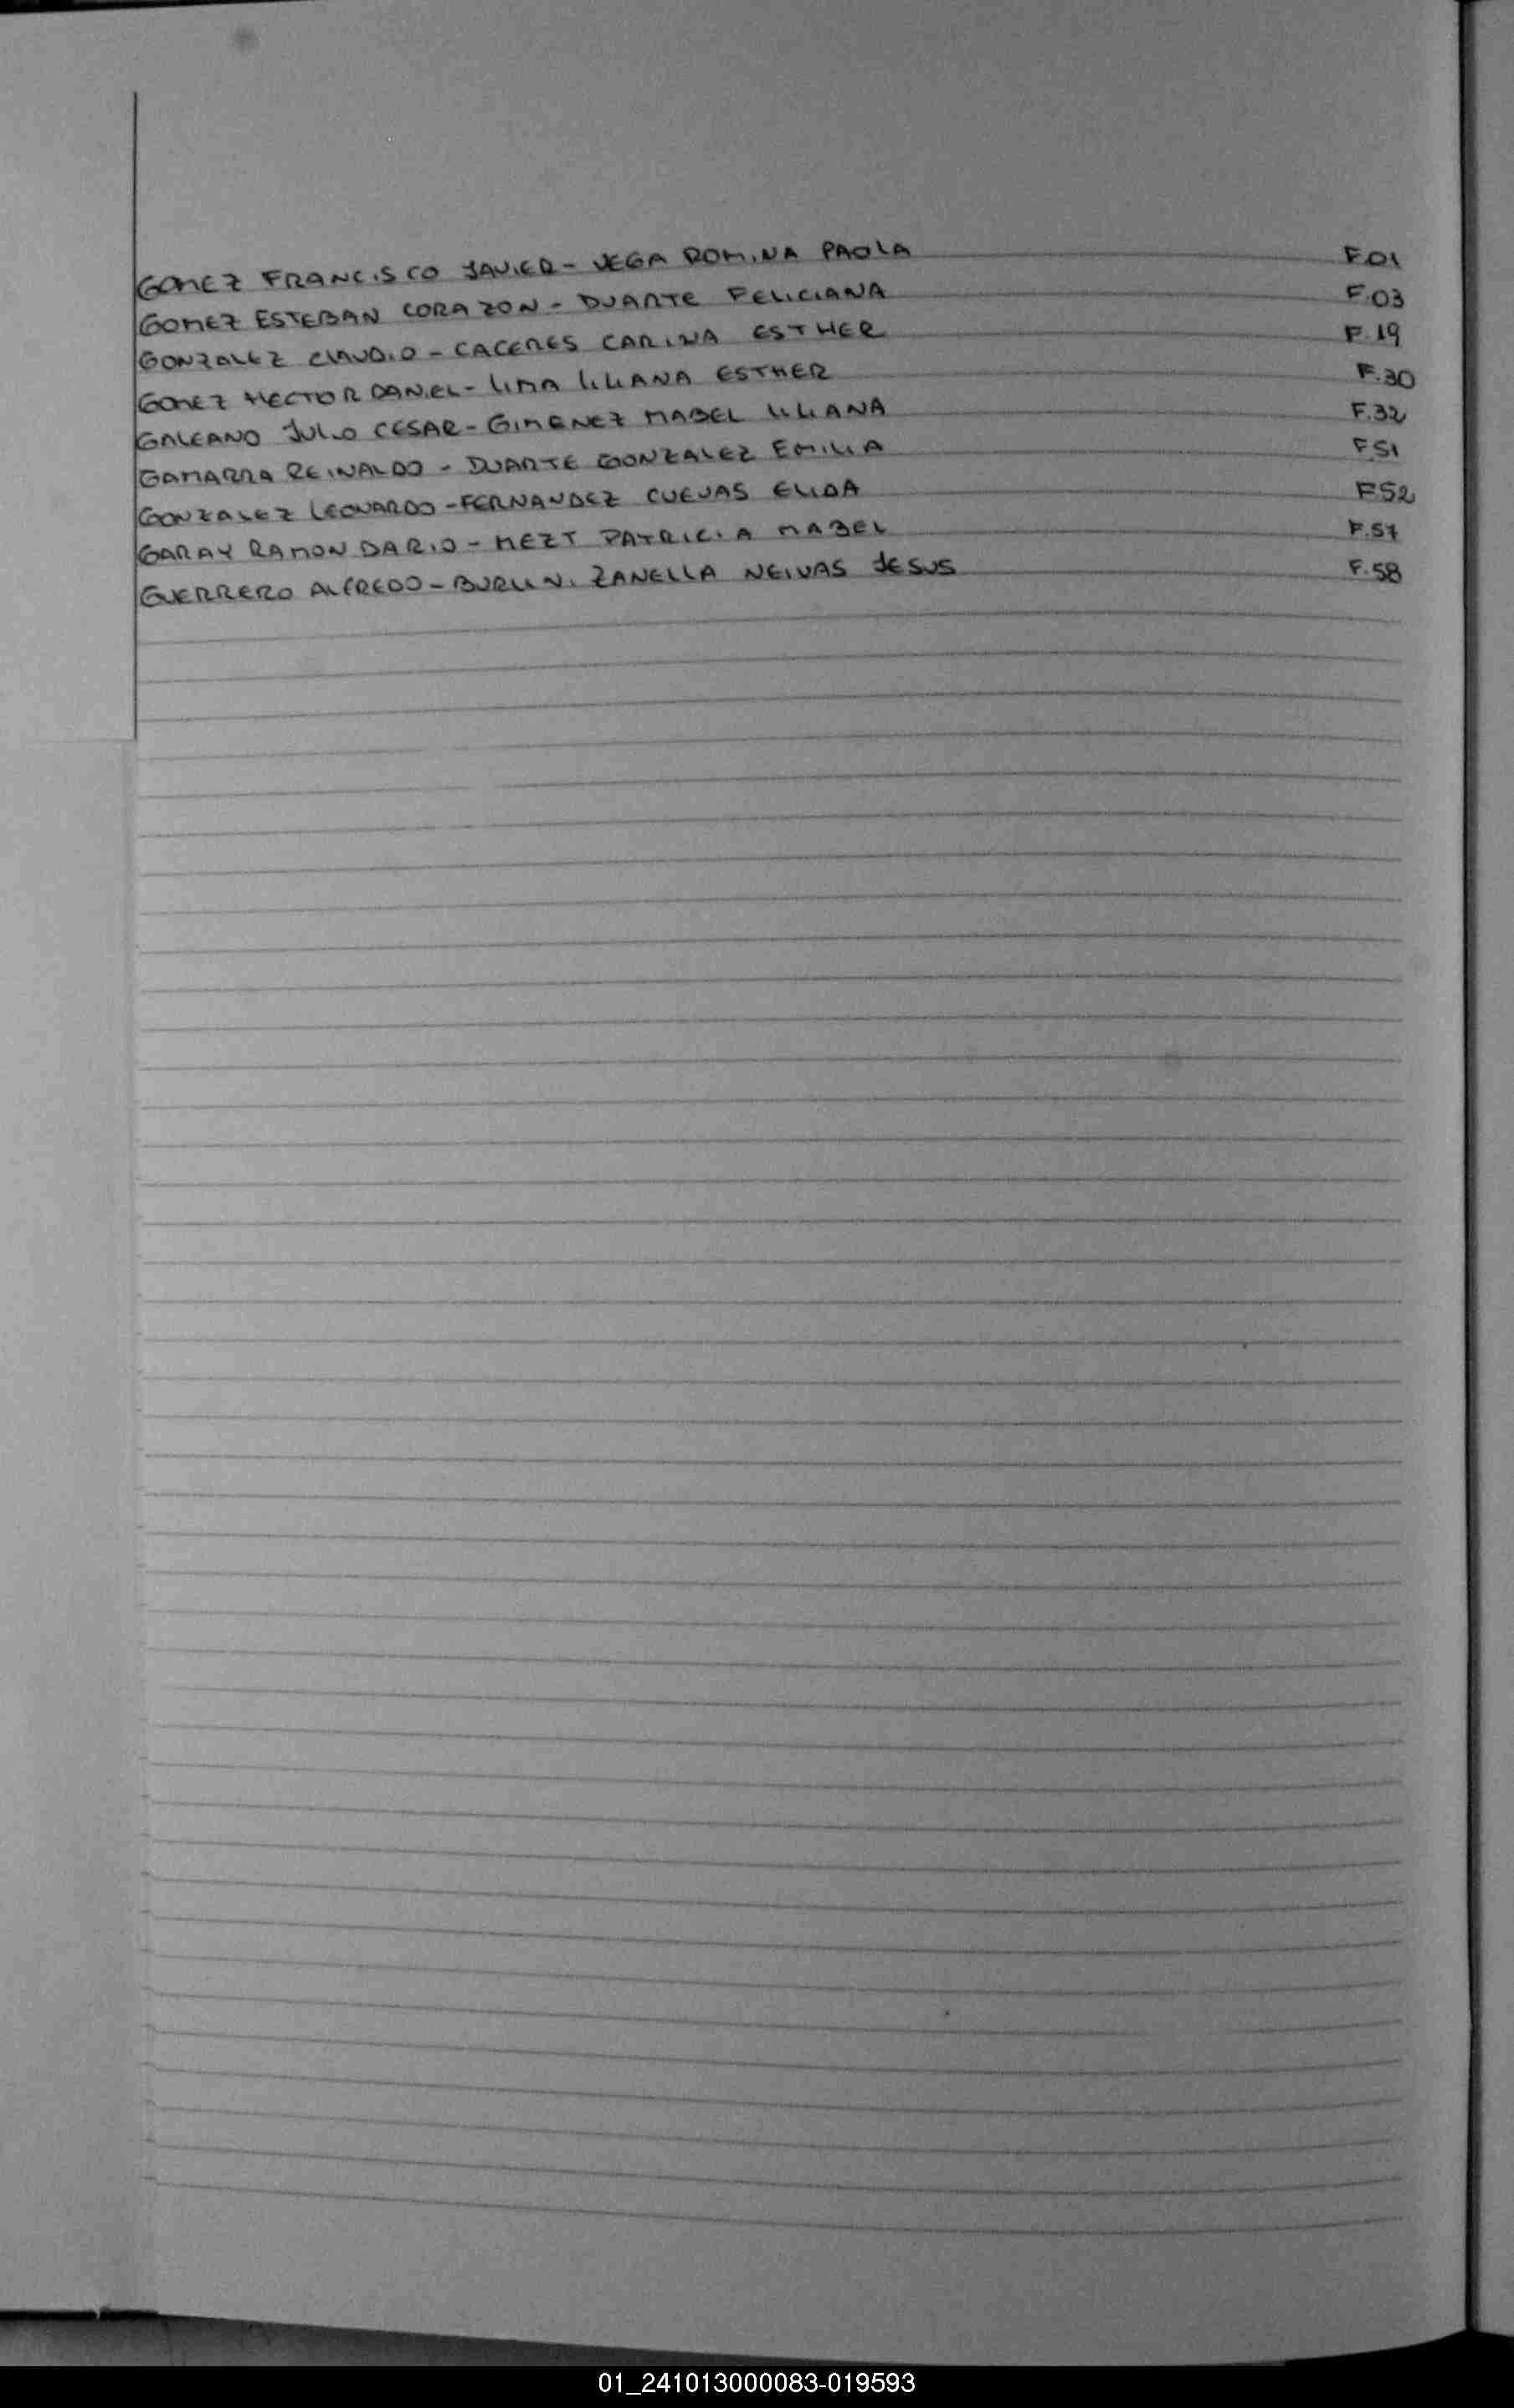 GOMEZ FRANCISCO JAVIER - VEGA ROMINA PAOLA F.01
GOMEZ ESTEBAN CORAZON - DUARTE FELICIANA F.03
GONZALEZ CLAUDIO - CACERES CARINA ESTHER F.19
GOMEZ HECTOR DANIEL - LIMA LILIANA ESTHER F.30
GALEANO JULIO CESAR - GIMENEZ MABEL LILIANA F.32
GAMARRA REINALDO - DUARTE GONZALEZ EMILIA F51
GONZALEZ LEONARDO - FERNANDEZ CUEVAS ELIDA F52
GARAY RAMON DARIO - MEZT PATRICIA MABEL F.57
GUERRERO ALFREDO - ZANELLA NEIVAS JESUS F.58
01_241013000083-019593